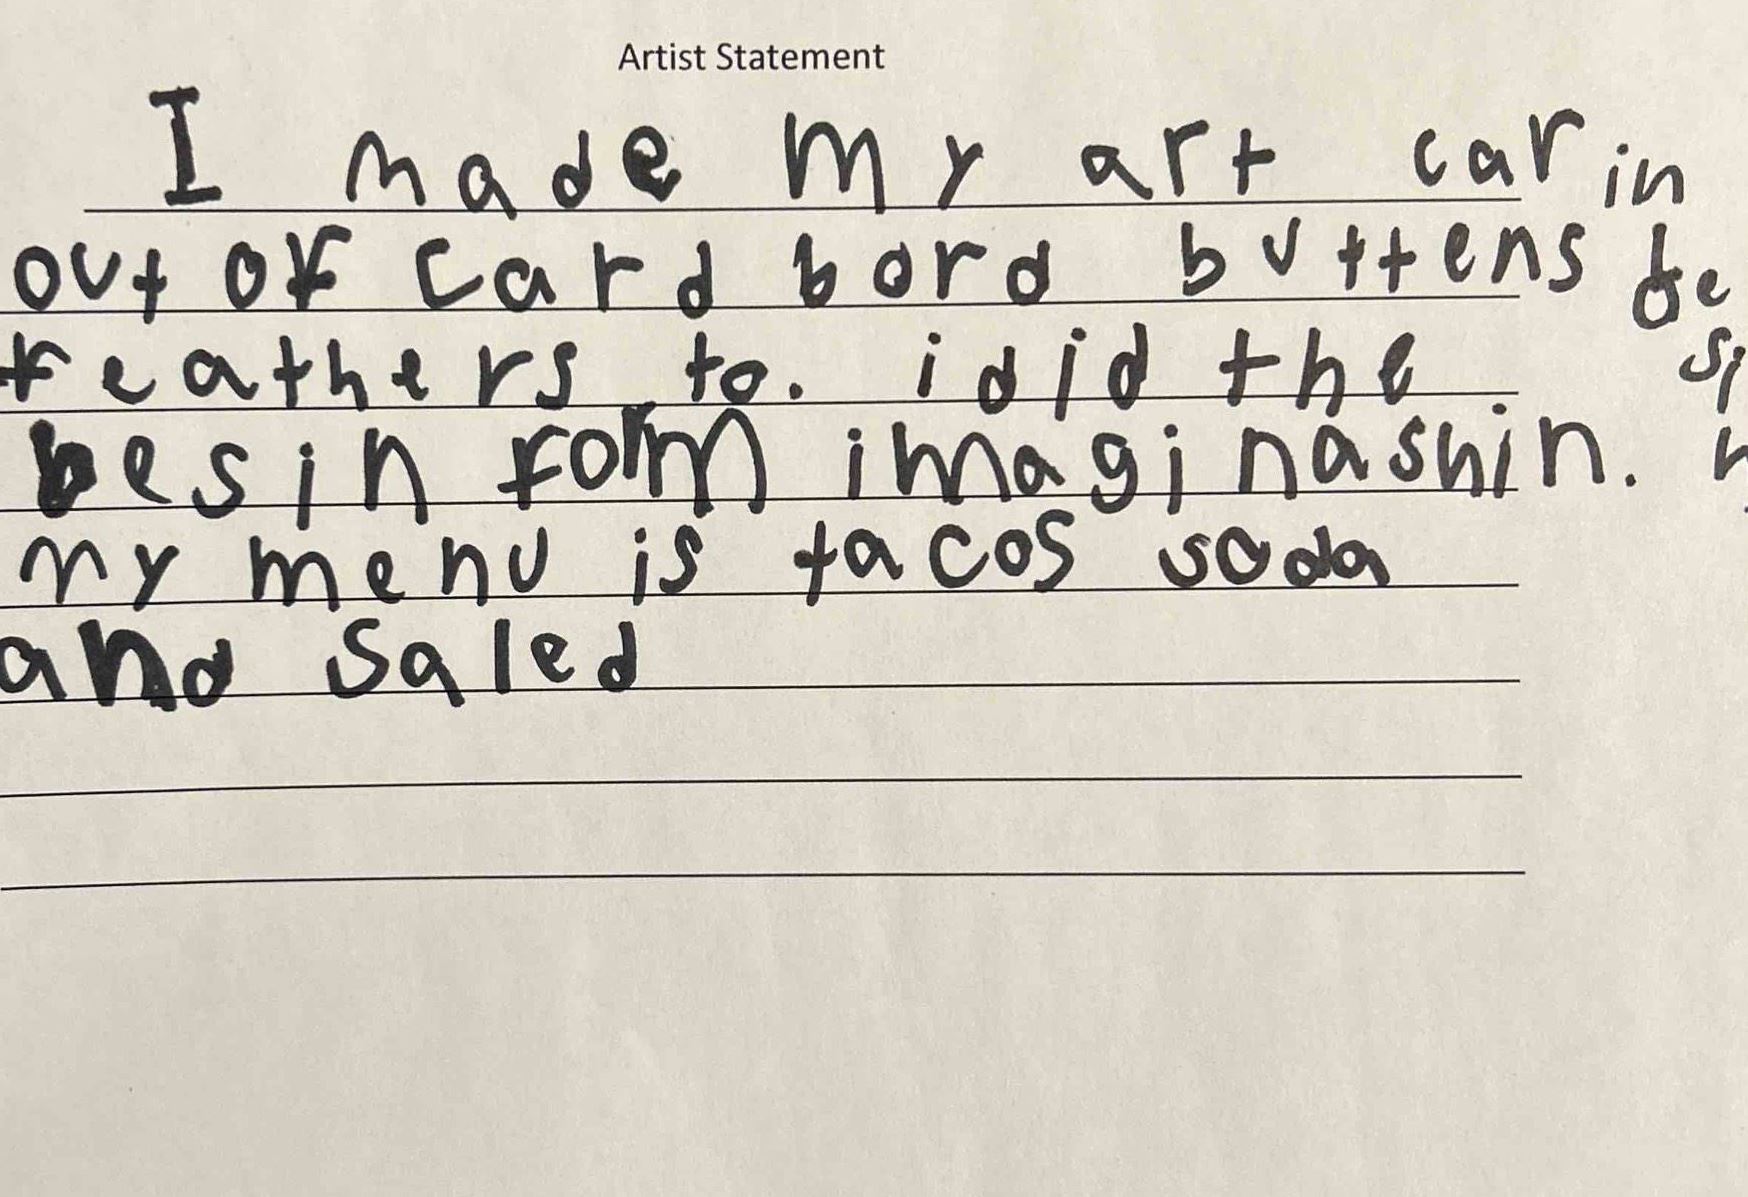 Artist Statement
I made my art car in
out of card bord buttens de
feathers to. i did the si
besin form imaginashin.
my menu is tacos soda
and saled